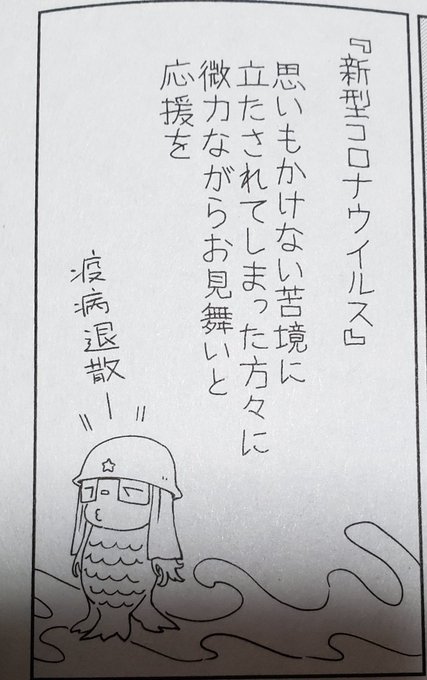 『新型コロナウイルス』
思いもかけない苦境に
立たされてしまった方々に
微力ながらお見舞いと
応援を
疫病退散ー